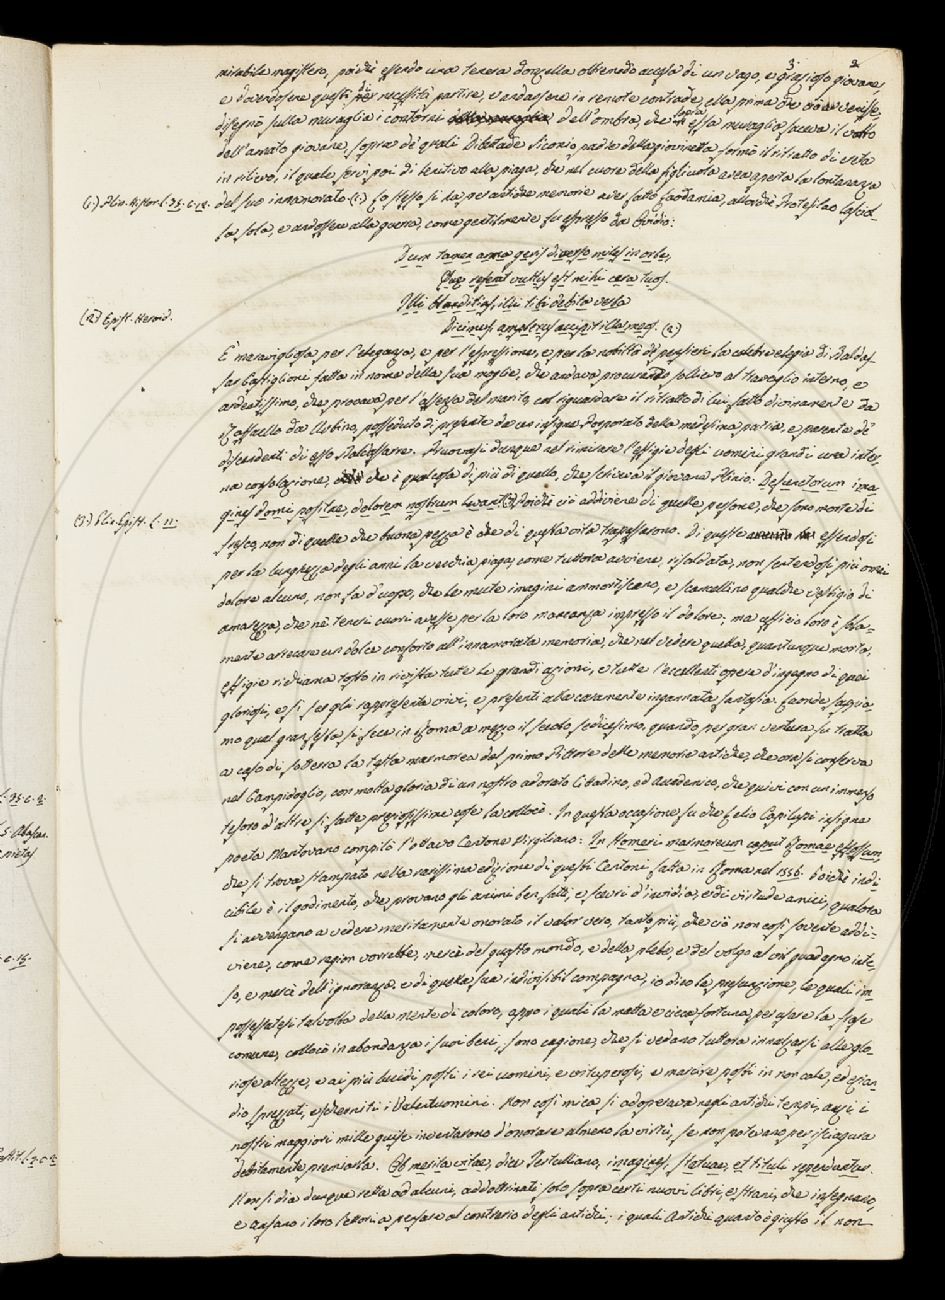 3 2
mirabile magistero, poichè essendo una tenera donzella oltremodo accesa di un vago, e grazioso giovane,
e dovendosene questi per necessità partire, e andarsene in remote contrade, ella prima che ciò avvenisse,
disegnò sulla muraglia i contorni dell'ombra, che sopra essa muraglia faceva il volto
dell'amato giovane, sopra de quali Dibutade Sicionio padre della giovinetta formò il ritratto di creta
in rilievo, il quale servì poi di lenitivo alla piaga, che nel cuore della figliuola avea aperta la lontananza
(1) Plin. Histor. l. 35. c. 12. del suo innamorato (1). Lo stesso si ha per antiche memorie aver fatto Laodamia, allorchè Protesilao lasciol-
la sola, e andossene alla guerra, come gentilmente fu espresso da Ovidio:
Dum tamen arma geres diverso miles in orbe,
Quæ referat vultus est mihi cera tuos.
Illi blanditias, illi tibi debita verba
(2) Epist. Heroid. Dicimus, amplexus accipit illa meos. (2)
E' maravigliosa per l'eleganza, e per l'espressione, e per la nobiltà de pensieri la celebre elegia di Baldas-
sar Castiglioni fatta in nome della sua moglie, che andava procurando sollievo al travaglio interno, e
ardentissimo, che provava per l'assenza del marito, col riguardare il ritratto di lui fatto divinamente da
Raffaello da Urbino, posseduto di presente da un insigne Porporato della medesima patria, e parente de'
discendenti di esso Baldassarre. Pruovasi dunque nel rimirare l'effigie degli uomini grandi una inter-
na consolazione, che è qualcosa di più di quello, che scriveva il giovane Plinio: Defunctorum ima-
(3) Plin. Epist. l. 11. gines domi positæ, dolorem nostrum levant (3) Poichè ciò addiviene di quelle persone, che sono morte di
fresco, non di quelle che buona pezza è che di questa vita trapassarono. Di queste essendosi
per la lunghezza degli anni la vecchia piaga, come tuttora avviene, risaldata, non sentendosi più omai
dolore alcuno, non fa d'uopo, che le mute imagini ammortiscano, e scancellino qualche vestigio di
amarezza, che ne' teneri cuori avesse per la loro mancanza impresso il dolore; ma uffizio loro è sola-
mente arrecare un dolce conforto all'innamorata memoria, che nel vedere quella, quantunque morta,
effigie richiama tosto in rivista tutte le grandi azioni, e tutte l'eccellenti opere d'ingegno di quei
gloriosi, e si fa gli rappresenta vivi, e presenti alla caramente ingannata fantasia. Laonde sappia-
mo qual gran festa si fece in Roma a mezzo il secolo sedicesimo, quando per gran ventura fu tratta
a caso di sotterra la testa marmorea del primo Pittore delle memorie antiche, che ora si conserva
nel Campidoglio, con molta gloria di un nostro adorato Cittadino, ed Accademico, che quivi con un immenso
tesoro d'altre sì fatte preziosissime cose la collocò. In questa occasione fu che Lelio Capilupi insigne
poeta Mantovano compilò l'ottavo Centone Virgiliano: In Homeri marmoreum caput Romae effossum,
che si trova stampato nella rarissima edizione di questi Centoni fatta in Roma nel 1556. Poichè indi-
cibile è il godimento, che provano gli animi ben fatti, e scevri d'invidia, e di virtude amici, qualora
si avvengano a vedere meritamente onorato il valor vero, tanto più, che ciò non così sovente addi-
viene, come ragion vorrebbe, mercè del guasto mondo, e della plebe, e del volgo al vil guadagno inte-
so, e mercè dell'ignoranza, e di quella sua indivisibil compagna, io dico la presunzione, le quali im-
possessatesi talvolta della mente di coloro, appo i quali la matta e cieca fortuna, per usare la frase
comune, collocò in abondanza i suoi beni, sono cagione, che si vedano tuttora innalzarsi alle glo-
riose altezze, e ai più lucidi posti i rei uomini, e vituperosi, e marcire posti in non cale, ed ezian-
dio sprezzati, e scherniti i Valentuomini. Non così mica si adoperava negli antichi tempi, anzi i
nostri maggiori mille guise inventarono d'onorare almeno la virtù, se non potevano per sciagura
debitamente premiarla. Ob merita vitæ, dice Tertulliano, imagines, statuæ, et tituli rependantur.
Non si dia dunque retta ad alcuni, addottrinati solo sopra certi nuovi libri, e strani, che insegnano,
e aussano i loro settori a pensare al contrario degli antichi; i quali Antichi quando è giusto il non